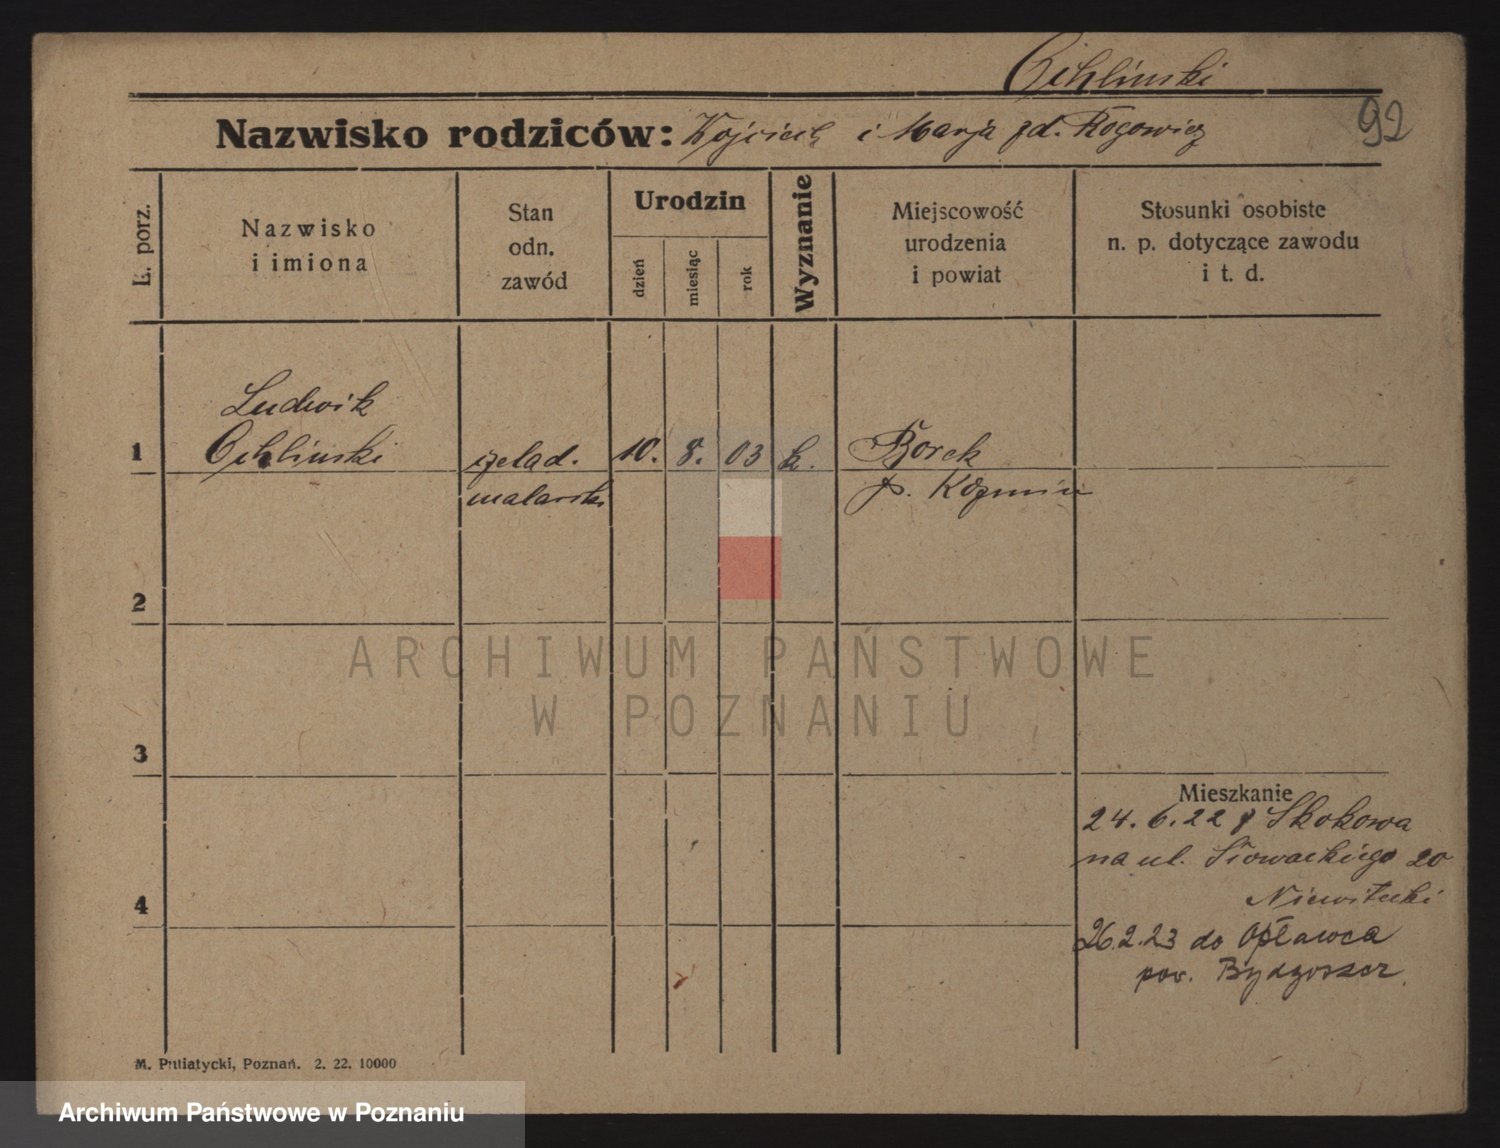 Cichliński
Nazwisko rodziców: Wojciech i Marja zd. Rogowicz
92
L. porz.
Nazwisko
i imiona
Stan
odn.
zawód
Urodzin
dzień
miesiąc
rok
Wyznanie
Miejscowość
urodzenia
i powiat
Stosunki osobiste
n. p. dotyczące zawodu
i t. d.
Ludwik
1 Cichliński czelad. 10. 8. 03 k. Borek
malarski p. Koźmin
2
3
Mieszkanie
24. 6. 22 z Skokowa
na ul. Słowackiego 20
4
26.2.23 do Opławca
pow. Bydgoszcz.
M. Putiatycki, Poznań. 2. 22. 10000
ARCHIWUM PAŃSTWOWE
W POZNANIU
Archiwum Państwowe w Poznaniu